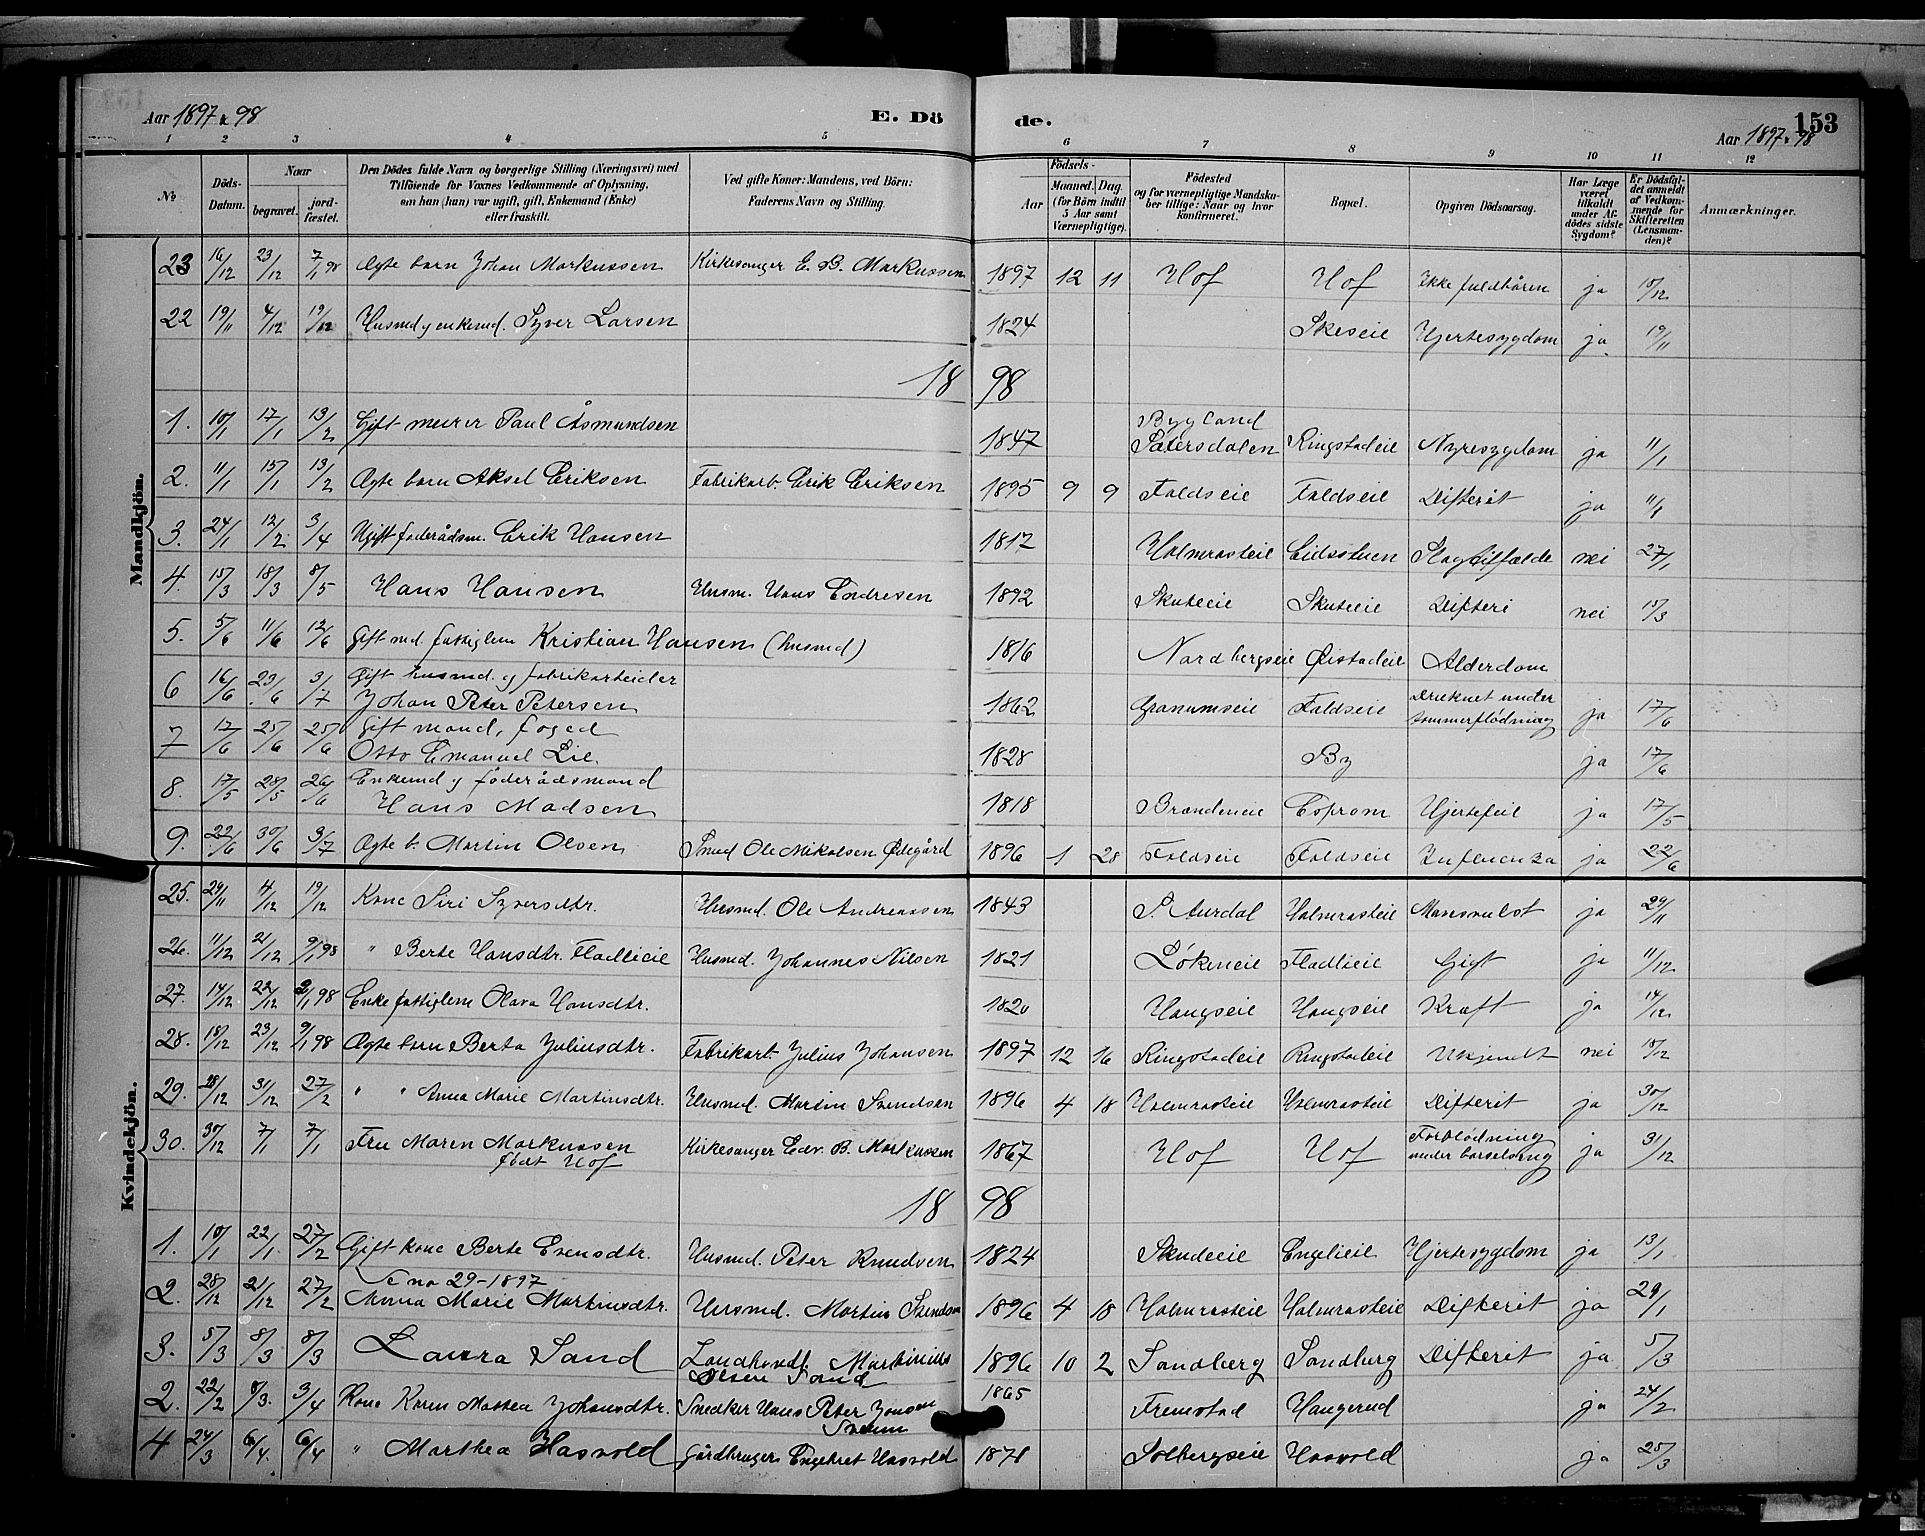 Aar 1897 & 98 E. Dö de. Aar 1897 & 98 153
1 2 3 4 5 6 7 8 9 10 11 12
No Döds-Datum. Naar begravet. jord-fæstet. Den Dödes fulde Navn og borgerlige Stilling (Næringsvei) med Tilföiende for Voxnes Vedkommende af Oplysning, om han (hun) var ugift, gift, Enkemand (Enke) eller fraskilt. Ved gifte Koner: Mandens, ved Börn: Faderens Navn og Stilling. Födsels- Aar Maaned. Dag. (for Börn indtil 5 Aar samt Værnepligtige). Födested og for værnepligtige Mandskaber tillige: Naar og hvor konfirmeret. Bopæl. Opgiven Dödsaarsag. Har Læge været tilkaldt under Afdödes sidste Sygdom? Er Dödsfaldet anmeldt af Vedkommende for Skifteretten (Lensmanden)? Anmærkninger.
Mandkjön.
23 16/12 23/12 7/1 98 Ægte barn Johan Markussen Kirkesanger E. B. Markussen 1897 12 11 Hof Hof Ikke fuldbåren ja 18/12
22 19/11 4/12 19/12 Husmd og enkemd. Syver Larsen 1824 Skeseie Hjertesygdom ja 19/11
18 98
1. 10/1 17/1 13/2 Gift murer Paul Åsmundsen 1847 Bygland Sætersdalen Ringstadeie Nyresygdom ja 11/1
2. 11/1 15/1 13/2 Ægte barn Aksel Eriksen Fabrikarb. Erik Eriksen 1895 9 9 Faldseie Faldseie Difterit ja 11/1
3. 24/1 12/2 3/4 Ugift føderådsm. Erik Hansen 1817 Holmrasteie Eidsstuen Slagtilfælde nei 27/1
4. 15/3 18/3 8/5 Hans Hansen Husm. Hans Endresen 1892 Skuteeie Skuteeie Difteri nei 15/3
5. 5/6 11/6 12/6 Gift md. fattiglem Kristian Hansen (husmd) 1816 Nordbergseie Øistadeie Alderdom
6 16/6 23/6 3/7 Gift husmd. og fabrikarbeider
Johan Peter Petersen 1862 Granumseie Faldseie Druknet under tømmerflødning ja 17/6
7 17/6 25/6 25/6 Gift mand, foged
Otto Emanuel Lie 1828 By ja 17/6
8. 17/5 28/5 26/6 Enkemd og føderådsmand
Hans Madsen 1818 Brændeneie Esprom Hjertefeil ja 17/5
9. 22/6 30/6 3/7 Ægte b. Martin Olsen Smed Ole Nikolsen Ødegård 1896 1 28 Faldseie Faldseie Influenza ja 22/6
Kvindekjön.
25. 29/11 4/12 19/12 Kone Siri Syversdtr. Husmd. Ole Andreassen 1843 S. Aurdal Holmrasteie ja 29/11
26. 11/12 21/12 9/1 98 " Berte Hansdtr. Fladlieie Husmd. Johannes Nilsen 1821 Løkeneie Fladlieie Gigt ja 11/12
27. 14/12 22/12 2/1 98 Enke fattiglem Olava Hansdtr. 1820 Haugseie Haugseie Kræft ja 14/12
28. 18/12 23/12 9/1 98 Ægte barn Berta Juliusdtr. Fabrikarb. Julius Johansen 1897 12 16 Ringstadeie Ringstadeie Ukjendt nei 18/12
29. 28/12 31/12 27/2 " " Anna Marie Martinsdtr. Husmd. Martin Svendsen 1896 4 18 Holmrasteie Holmrasteie Difterit ja 30/12
30. 30/12 7/1 7/1 Fru Maren Markussen
født Hof Kirkesanger Edv. B. Markussen 1867 Hof Hof Forblødning under barselseng ja 31/12
18 98
1. 10/1 22/1 27/2 Gift kone Berte Evensdtr. Husmd. Peter Knudsen 1824 Skudeeie Englieie Hjertesygdom ja 13/1
Se no 29-1897
2. 28/12 21/12 27/2 Anna Marie Martinsdtr. Husmd. Martin Svendsen 1896 4 18 Holmrasteie Holmrasteie Difterit ja 29/1
3. 5/3 8/3 8/3 Laura Sand Landhandl. Martinius
Olsen Sand 1896 10 2 Sandberg Sandberg Difterit ja 5/3
2. 22/2 8/3. 3/4 Kone Karen Mathea Johansdtr. Snedker Hans Peter Jonsen 1865 Fremstad Haugerud ja 24/2
4 24/3 6/4. 6/4 " Marthea Hasvold Gårdbruger Engebret Hasvold 1871 Solbergseie Hasvold ja 28/3